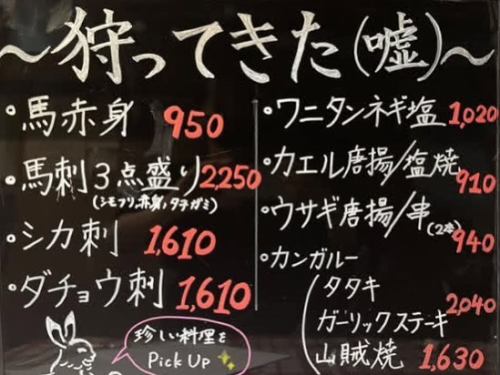 ～狩ってきた(嘘)～
・馬赤身 950
・馬刺3点盛り 2,250
(シモフリ,赤身,タテガミ)
・シカ刺 1,610
・ダチョウ刺 1,610
珍しい料理を
Pick UP
・ワニタンネギ塩 1,020
・カエル唐揚/塩焼 910
・ウサギ唐揚/串(2本) 940
・カンガルー
タタキ
ガーリックステーキ 2,040
山賊焼 1,630